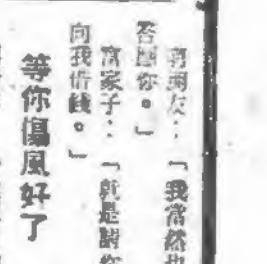 窮朋友：「我當然也
答應你。」
富家子：「就是請你
向我借錢。」
等你傷風好了